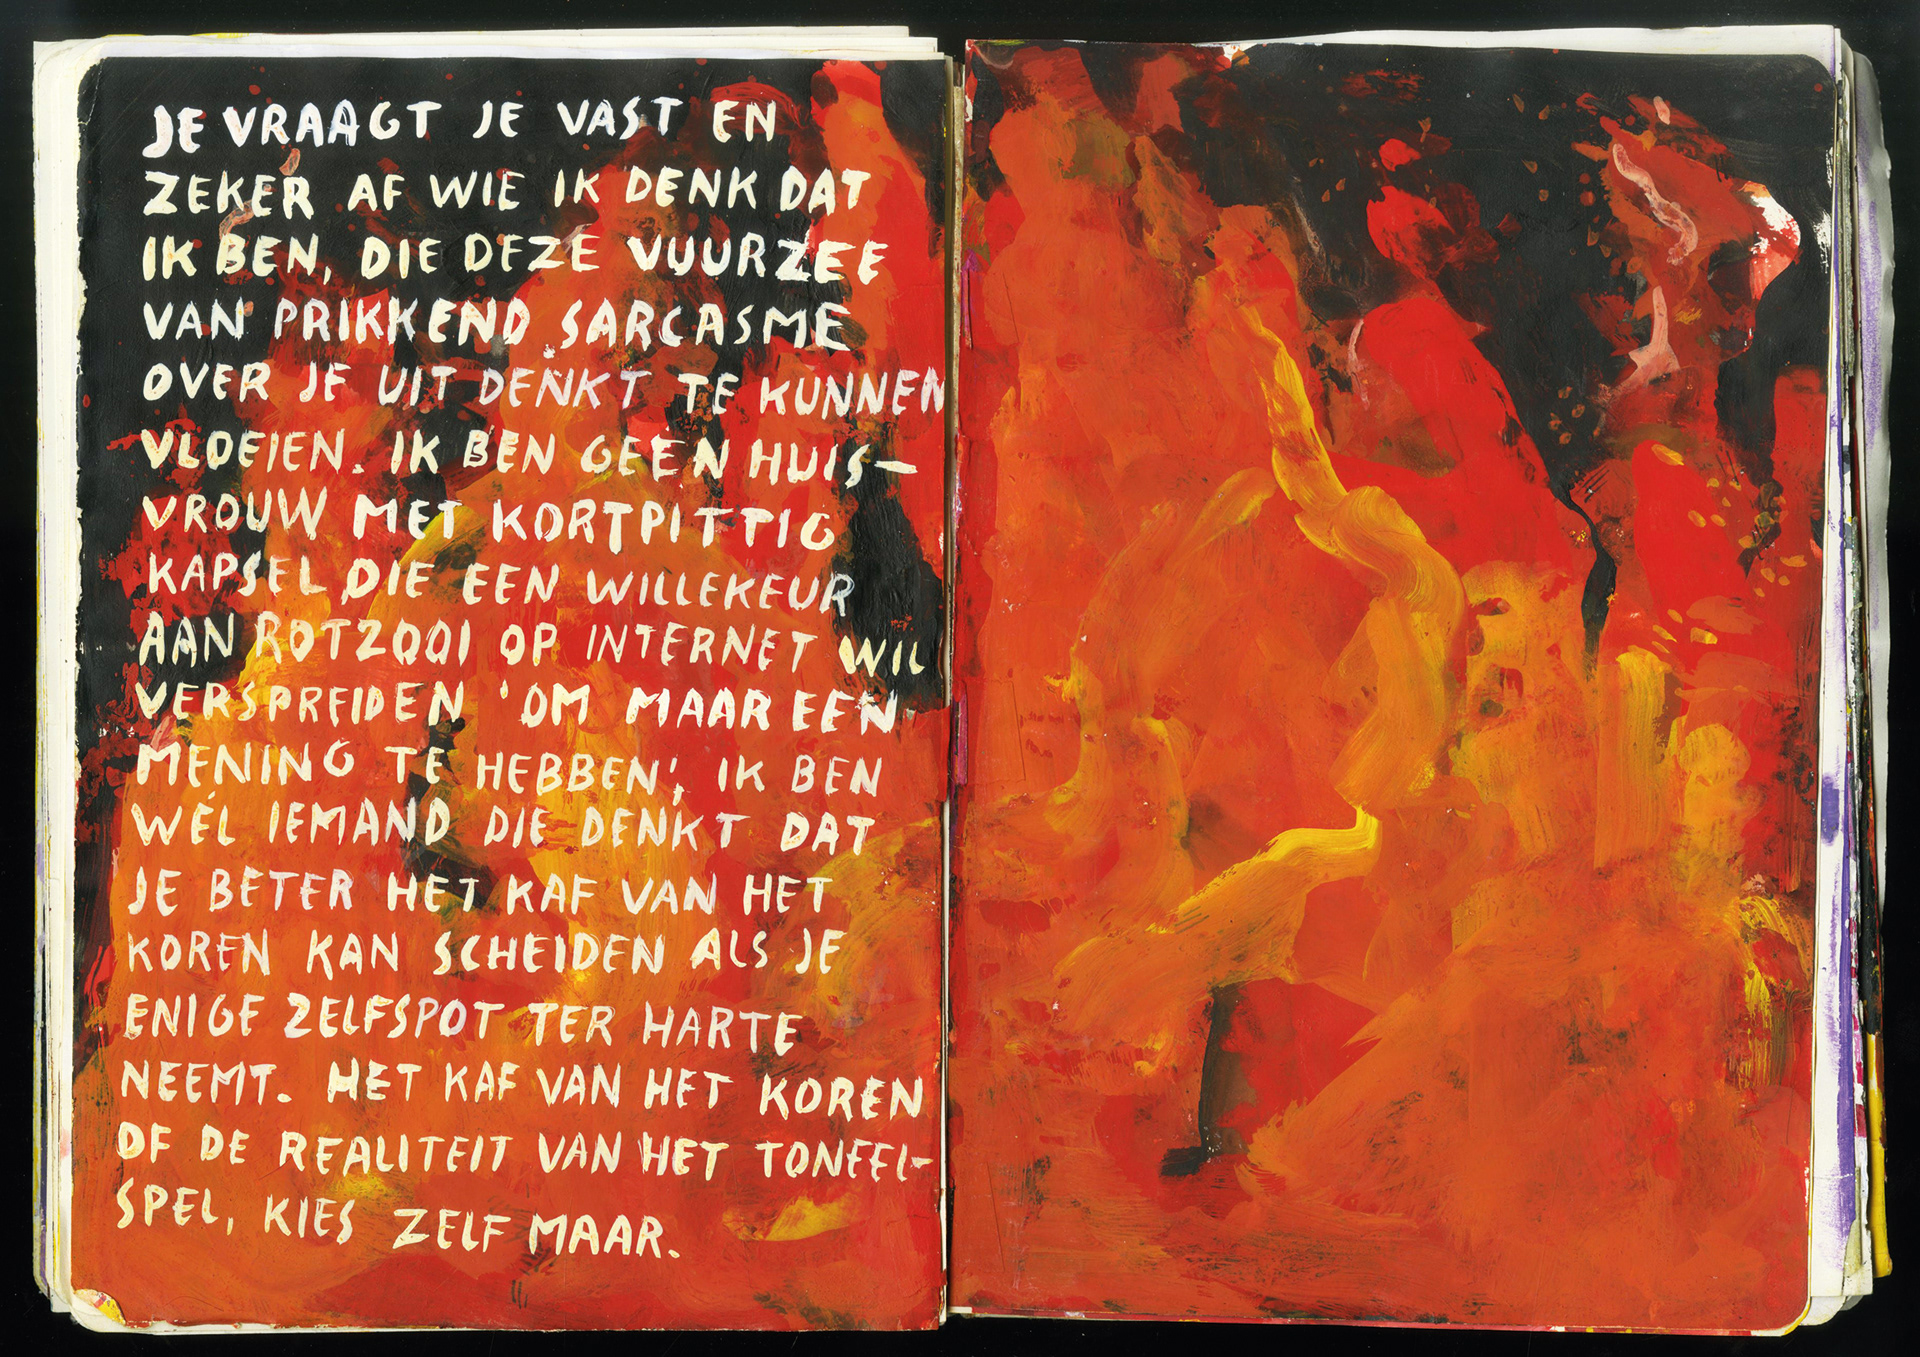 JE VRAAGT JE VAST EN
ZEKER AF WIE IK DENK DAT
IK BEN, DIE DEZE VUURZEE
VAN PRIKKEND SARCASME
OVER JE UIT DENKT TE KUNNEN
VLOEIEN. IK BEN GEEN HUIS-
VROUW MET KORTPITTIG
KAPSEL DIE EEN WILLEKEUR
AAN ROTZOOI OP INTERNET WIL
VERSPREIDEN 'OM MAAR EEN
MENING TE HEBBEN', IK BEN
WÉL IEMAND DIE DENKT DAT
JE BETER HET KAF VAN HET
KOREN KAN SCHEIDEN ALS JE
ENIGE ZELFSPOT TER HARTE
NEEMT. HET KAF VAN HET KOREN
OF DE REALITEIT VAN HET TONEEL-
SPEL, KIES ZELF MAAR.